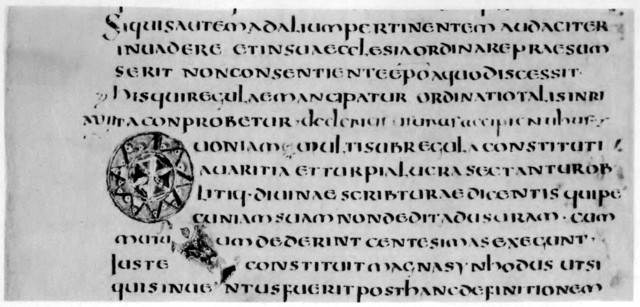 Siquis autem ad alium pertinentem audaciter
inuadere et in sua ecclesia ordinare praesum
serit non consentiente epo a quo discessit·
his qui regulae mancipatur ordinatio talis inri
ta conprobetur· de clericis usuras accipientibus
Quoniam multi sub regula constituti
auaritia et turpia lucra sectantur ob
litiq· diuinae scribturae dicentis qui pe
cuniam suam non dedit ad usuram· cum
mutu um dederint centesimas exegunt·
Iuste constituit magna synhodus ut si
quis inuentus fuerit post hanc definitionem